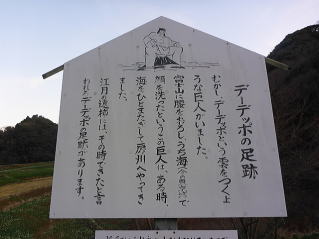 デーデッポの足跡
むかしデーデッポという雲をつくよ
うな巨人がいました。
富士山に腰をおろしうち海(東京湾)で
顔を洗ったというこの巨人は、ある時、
海をひとまたぎして房州へやってき
ました。
江月の遺柄には、その時できたと言
われるデーデッポの足跡があります。